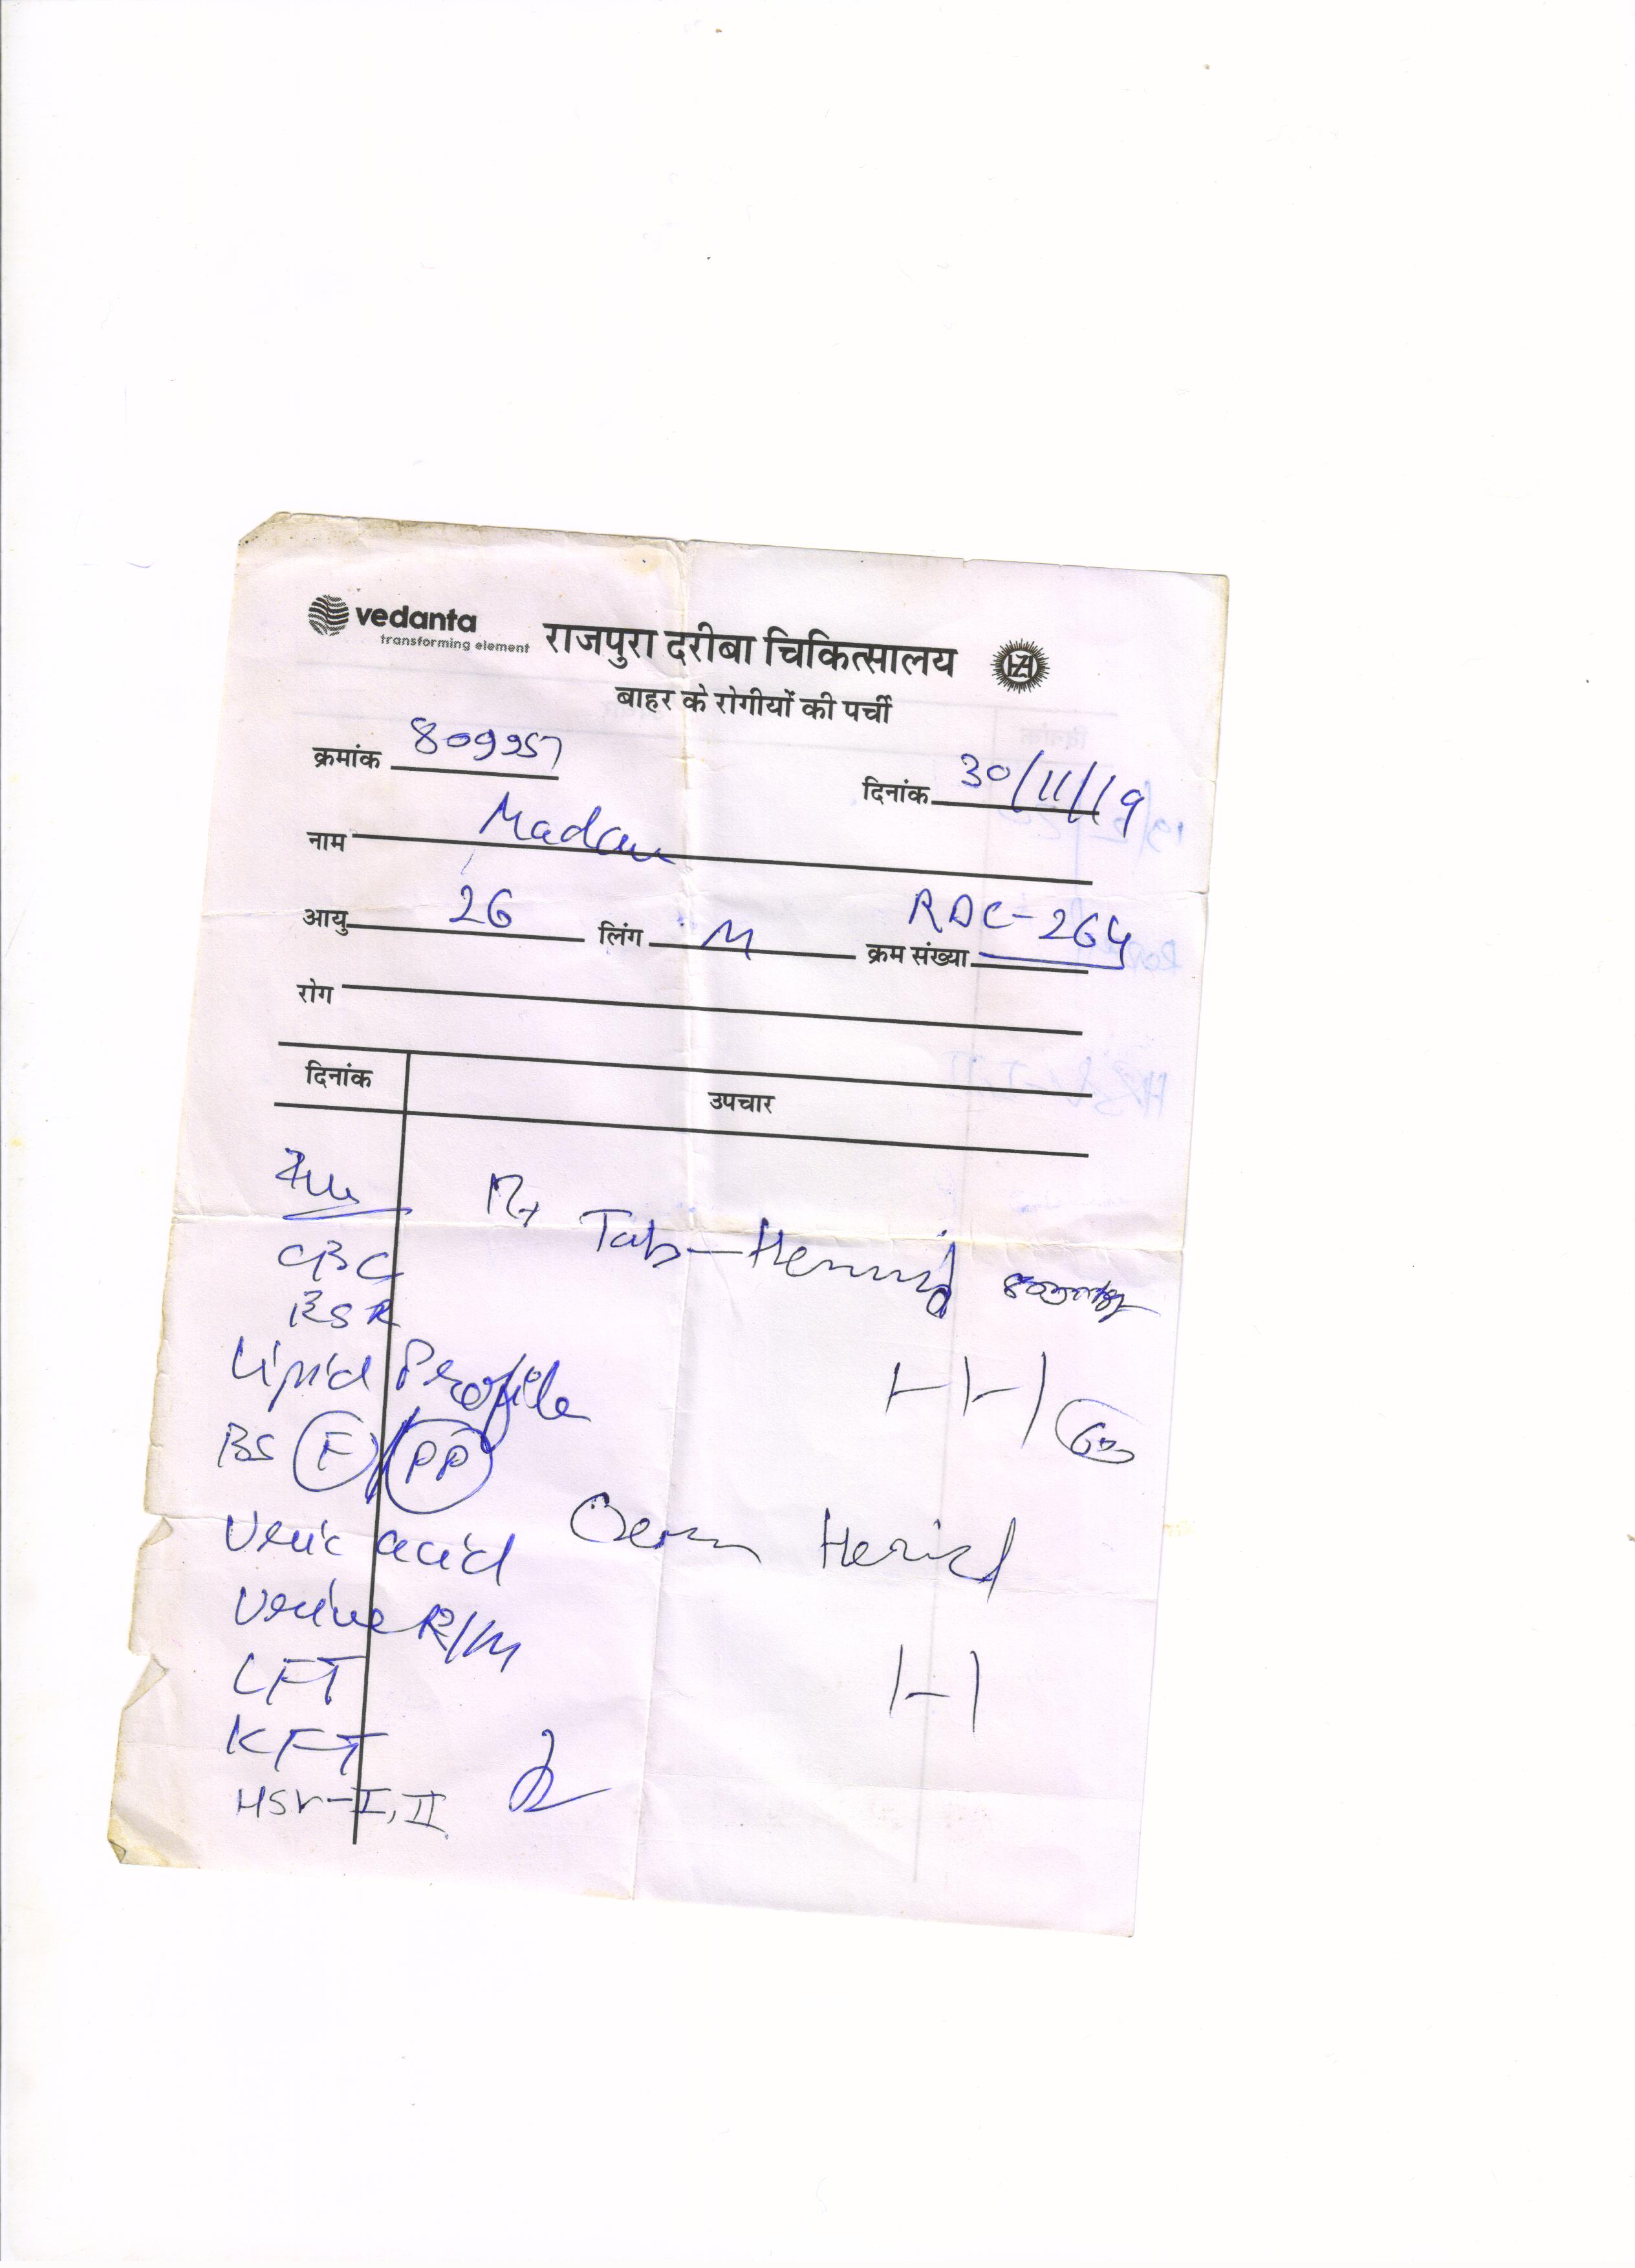 vedanta
transforming element
राजपुरा दरीबा चिकित्सालय
बाहर के रोगीयों की पर्ची
क्रमांक 809957
दिनांक 30/11/19
नाम Madan
आयु 26 लिंग M क्रम संख्या RDC-264
रोग
दिनांक उपचार
Rx
Tab-
CBC
BSR
Lipid Profile
1-1-1
BS F/PP
Uric acid
Urine R/M
LFT
1-1
KFT
HSV-I, II